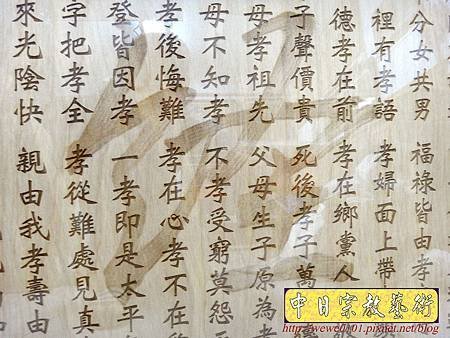 分女共男 福祿皆由孝
裡有孝語 孝婦面上帶
德孝在前 孝在鄉黨人
子聲價貴 死後孝子萬
母孝祖先 父母生子原為
母不知孝 不孝受窮莫怨
孝後悔難 孝在心孝不在
登皆因孝 一孝即是太平
字把孝全 孝從難處見真
來光陰快 親由我孝壽由
中日宗教藝術
http://wewei101.pixnet.net/blog